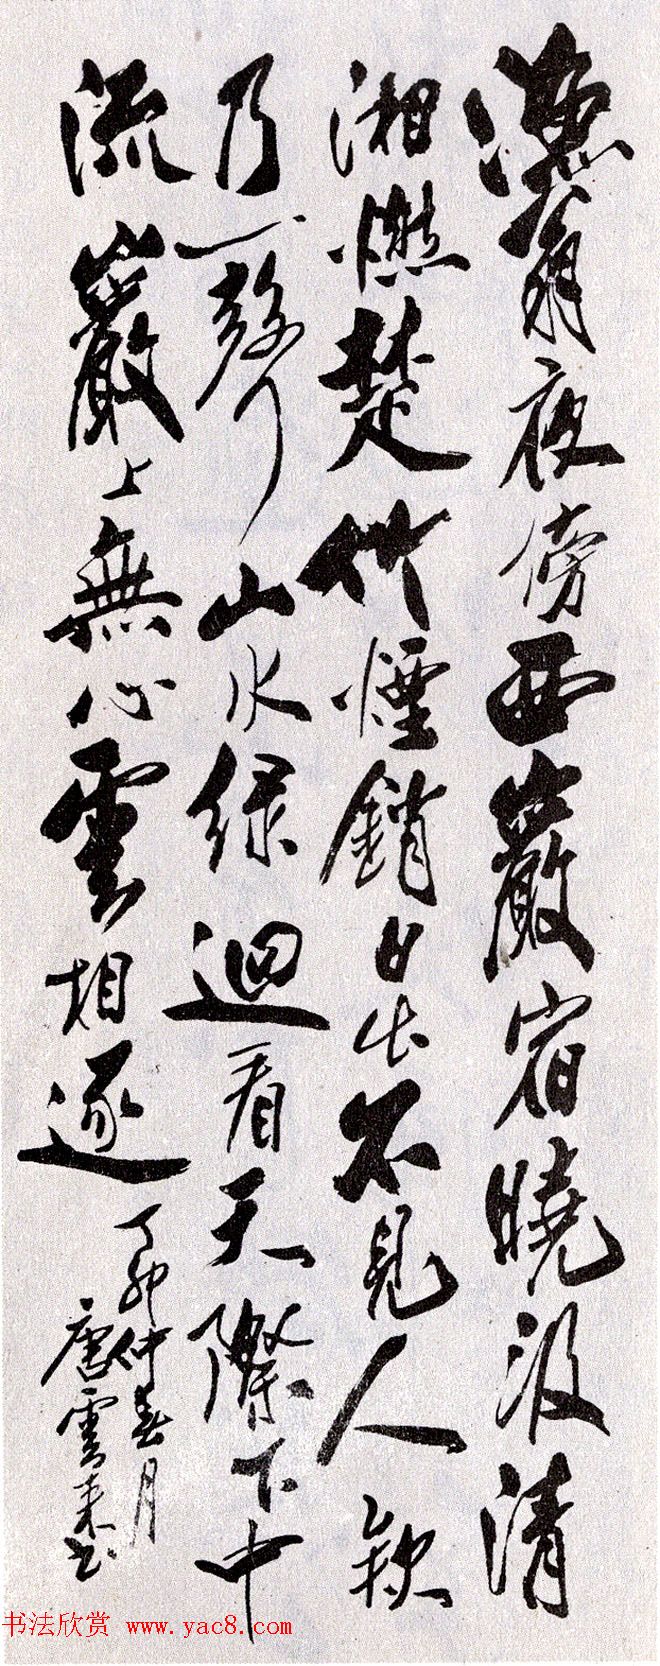 漁翁夜傍西巖宿曉汲清
湘燃楚竹煙銷日出不見人欸
乃一聲山水綠迴看天際下中
流巖上無心雲相逐
丁卯仲春月
唐雲來書
书法欣赏 www.yac8.com